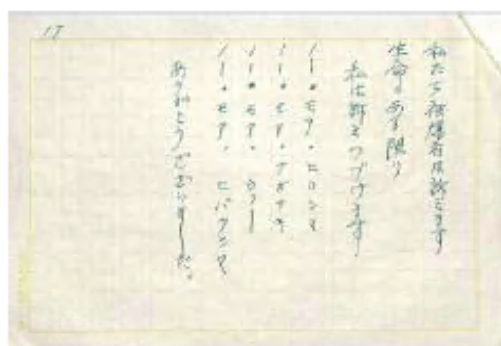 17
私たち被爆者は訴えます
生命のある限り
私は訴えつづけます
ノー・モア・ヒロシマ
ノー・モア・ナガサキ
ノー・モア・ウォー
ノー・モア・ヒバクシャ
ありがとうございました。